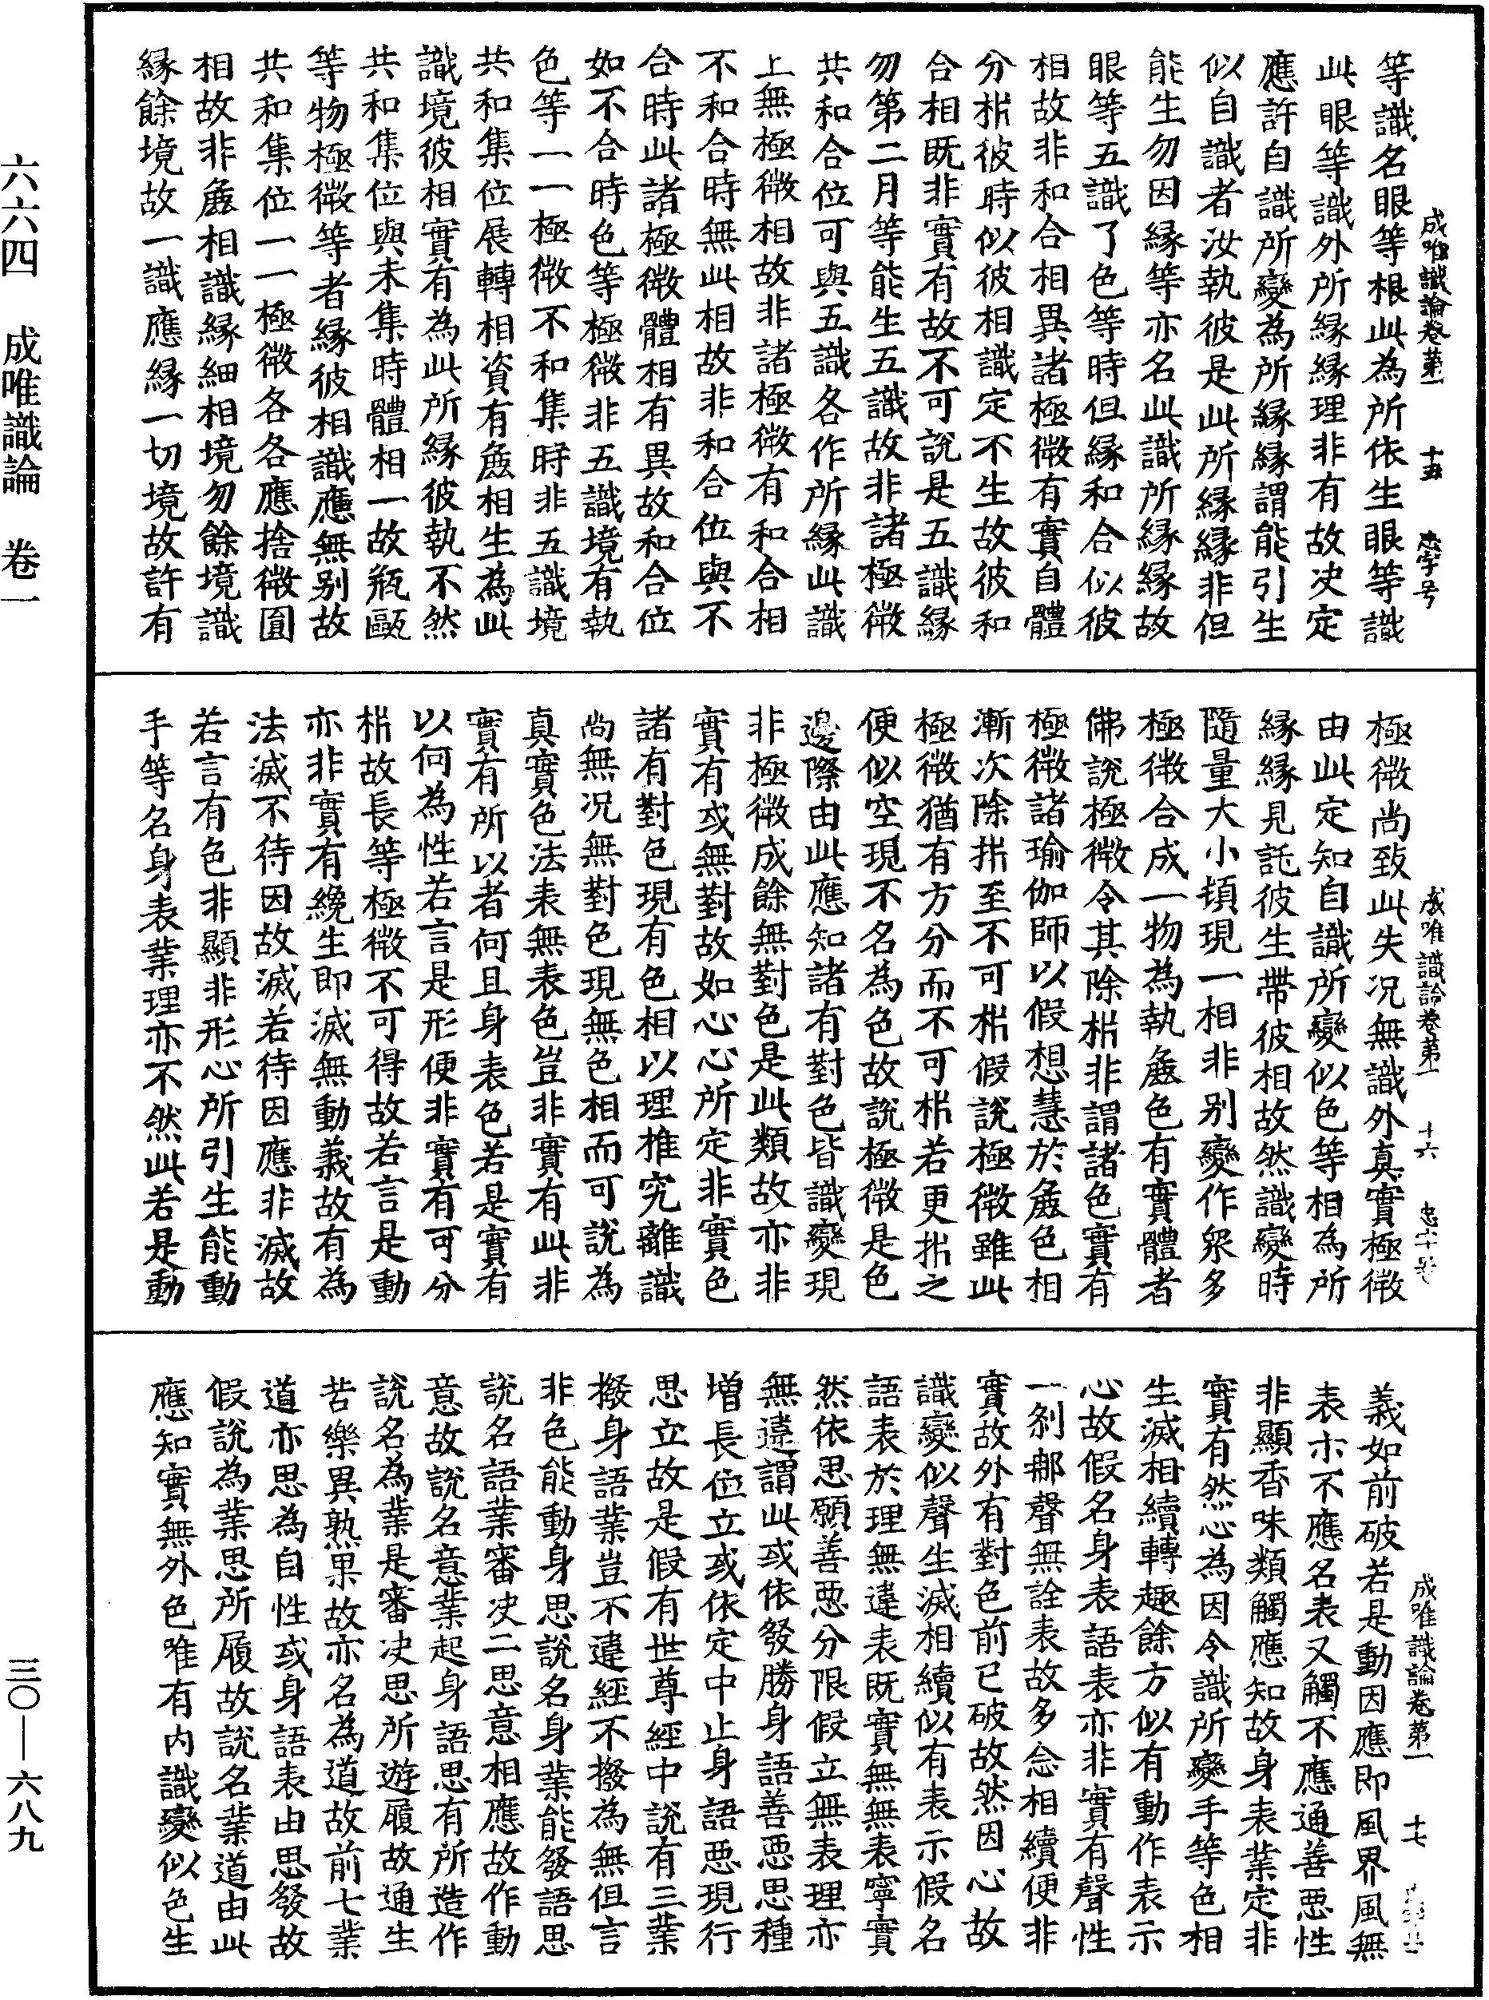 成唯識論卷第一　十五　忠字号
等識名眼等根此為所依生眼等識
此眼等識外所緣緣理非有故決定
應許自識所變為所緣緣謂能引生
似自識者汝執彼是此所緣緣非但
能生勿因緣等亦名此識所緣緣故
眼等五識了色等時但緣和合似彼
相故非和合相異諸極微有實自體
分析彼時似彼相識定不生故彼和
合相既非實有故不可說是五識緣
勿第二月等能生五識故非諸極微
共和合位可與五識各作所緣此識
上無極微相故非諸極微有和合相
不和合時無此相故非和合位與不
合時此諸極微體相有異故和合位
如不合時色等極微非五識境有執
色等一一極微不和集時非五識境
共和集位展轉相資有麁相生為此
識境彼相實有為此所緣彼執不然
共和集位與未集時體相一故瓶甌
等物極微等者緣彼相識應無別故
共和集位一一極微各各應捨微圓
相故非麁相識緣細相境勿餘境識
緣餘境故一識應緣一切境故許有
成唯識論卷第一　十六　忠字号
極微尚致此失況無識外真實極微
由此定知自識所變似色等相為所
緣緣見託彼生帶彼相故然識變時
隨量大小頓現一相非別變作眾多
極微合成一物為執麁色有實體者
佛說極微令其除析非謂諸色實有
極微諸瑜伽師以假想慧於麁色相
漸次除析至不可析假說極微雖此
極微猶有方分而不可析若更析之
便似空現不名為色故說極微是色
邊際由此應知諸有對色皆識變現
非極微成餘無對色是此類故亦非
實有或無對故如心心所定非實色
諸有對色現有色相以理推究離識
尚無況無對色現無色相而可說為
真實色法表無表色豈非實有此非
實有所以者何且身表色若是實有
以何為性若言是形便非實有可分
析故長等極微不可得故若言是動
亦非實有纔生即滅無動義故有為
法滅不待因故滅若待因應非滅故
若言有色非顯非形心所引生能動
手等名身表業理亦不然此若是動
成唯識論卷第一　十七
義如前破若是動因應即風界風無
表示不應名表又觸不應通善惡性
非顯香味類觸應知故身表業定非
實有然心為因令識所變手等色相
生滅相續轉趣餘方似有動作表示
心故假名身表語表亦非實有聲性
一剎那聲無詮表故多念相續便非
實故外有對色前已破故然因心故
識變似聲生滅相續似有表示假名
語表於理無違表既實無無表寧實
然依思願善惡分限假立無表理亦
無違謂此或依發勝身語善惡思種
增長位立或依定中止身語惡現行
思立故是假有世尊經中說有三業
撥身語業豈不違經不撥為無但言
非色能動身思說名身業能發語思
說名語業審決二思意相應故作動
意故說名意業起身語思有所造作
說名為業是審決思所遊履故通生
苦樂異熟果故亦名為道故前七業
道亦思為自性或身語表由思發故
假說為業思所履故說名業道由此
應知實無外色唯有內識變似色生
六六四　成唯識論　卷一
三〇—六八九